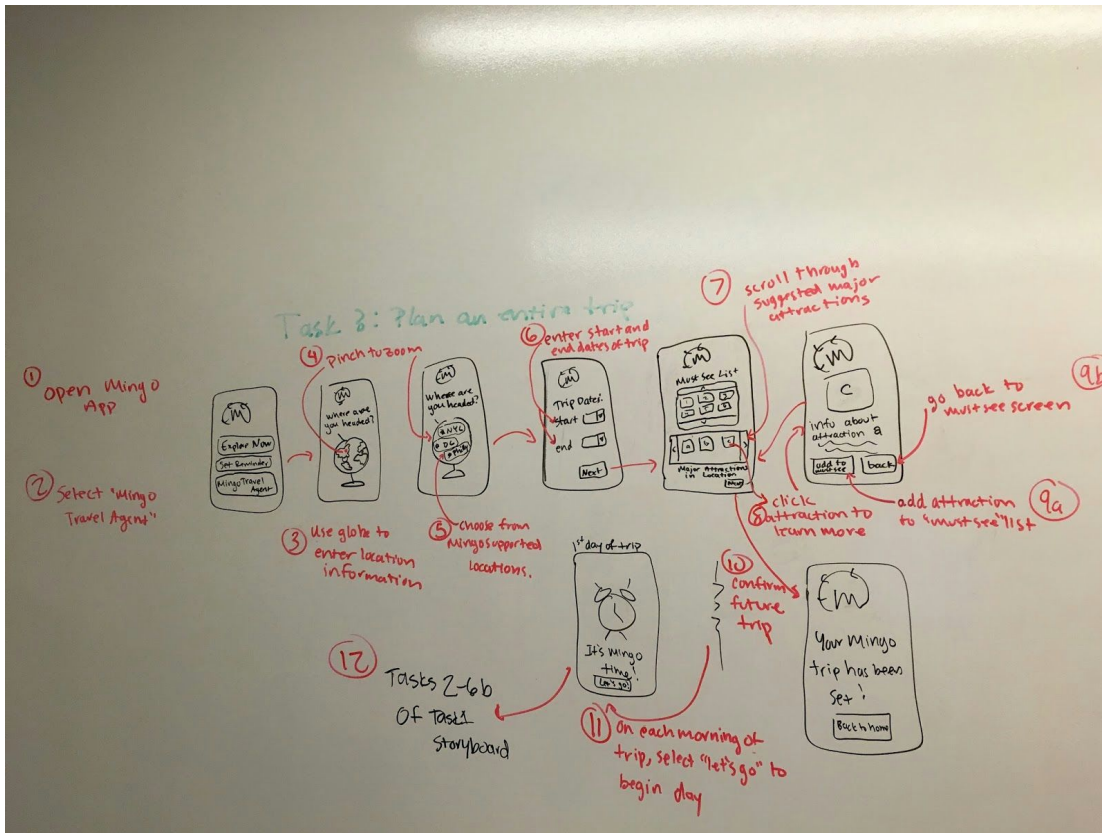 Task 3: Plan an entire trip
① open Mingo
App
② Select "Mingo
Travel Agent"
m
Explore Now
Set Reminder
Mingo Travel
Agent
③ Use globe to
enter location
information
④ pinch to zoom
m
where are
you headed?
m
where are
you headed?
NYC
DC
Philly
⑤ choose from
Mingo supported
locations.
⑥ enter start and
end dates of trip
m
Trip Dates:
start
end
Next
⑦ scroll through
suggested major
attractions
m
Must See List
Major Attractions
in Location
Next
⑧ click
attraction to
learn more
m
C
info about
attraction &
add to
must see
back
9a
add attraction
to "must see" list
9b
go back to
must see screen
⑩
confirm
future
trip
m
Your Mingo
trip has been
set!
Back to home
⑪ On each morning of
trip, select "let's go" to
begin day
1st day of trip
It's Mingo
time!
Let's go!
⑫
Tasks 2-6b
Of Task 1
Storyboard